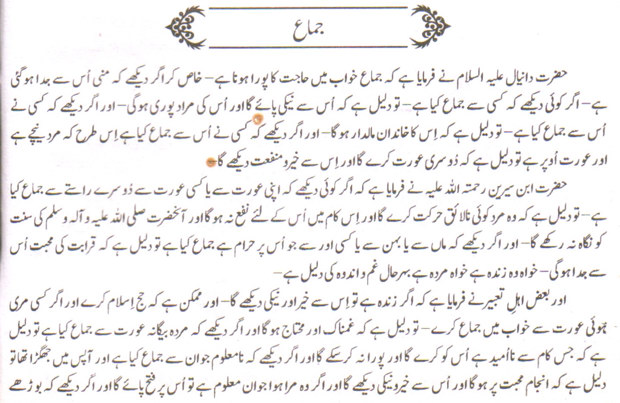 جماع
حضرت دانیال علیہ السلام نے فرمایا ہے کہ جماع خواب میں حاجت کا پورا ہونا ہے- خاص کر اگر دیکھے کہ منی اُس سے جدا ہو گئی
ہے- اگر کوئی دیکھے کہ کسی سے جماع کیا ہے- تو دلیل ہے کہ اُس سے نیکی پائے گا اور اُس کی مراد پوری ہو گی- اور اگر دیکھے کہ کسی نے
اُس سے جماع کیا ہے- تو دلیل ہے کہ اِس کا خاندان مالدار ہو گا- اور اگر دیکھے کہ کسی نے اُس سے جماع کیا ہے اِس طرح کہ مرد نیچے ہے
اور عورت اُوپر ہے تو دلیل ہے کہ دُوسری عورت کرے گا اور اِس سے خیر و منفعت دیکھے گا-
حضرت ابن سیرین رحمتہ اللہ علیہ نے فرمایا ہے کہ اگر کوئی دیکھے کہ اپنی عورت سے یا کسی عورت سے دُوسرے راستے سے جماع کیا
ہے- تو دلیل ہے کہ وہ مرد کوئی نالائق حرکت کرے گا اور اِس کام میں اُس کے لئے نفع نہ ہو گا اور آنحضرت صلی اللہ علیہ و آلہ وسلم کی سنت
کو نگاہ نہ رکھے گا- اور اگر دیکھے کہ ماں سے یا بہن سے یا کسی اور سے جو اُس پر حرام ہے جماع کیا ہے تو دلیل ہے کہ قرابت کی محبت اُس
سے جدا ہو گی- خواہ وہ زندہ ہے خواہ مردہ ہے بہرحال غم و اندوہ کی دلیل ہے-
اور بعض اہلِ تعبیر نے فرمایا ہے کہ اگر زندہ ہے تو اِس سے خیر اور نیکی دیکھے گا- اور ممکن ہے کہ حج اِسلام کرے اور اگر کسی مری
ہُوئی عورت سے خواب میں جماع کرے- تو دلیل ہے کہ غمناک اور محتاج ہو گا اور اگر دیکھے کہ مردہ بیگانہ عورت سے جماع کیا ہے تو دلیل
ہے کہ جس کام سے نااُمید ہے اُس کو کرے گا اور پورا نہ کر سکے گا اور اگر دیکھے کہ نامعلوم جوان سے جماع کیا ہے اور آپس میں جھگڑا تھا تو
دلیل ہے کہ انجام محبت پر ہو گا اور اُس سے خیر و نیکی دیکھے گا اور اگر وہ مرا ہوا جوان معلوم ہے تو اُس پر فتح پائے گا اور اگر دیکھے کہ بوڑھے